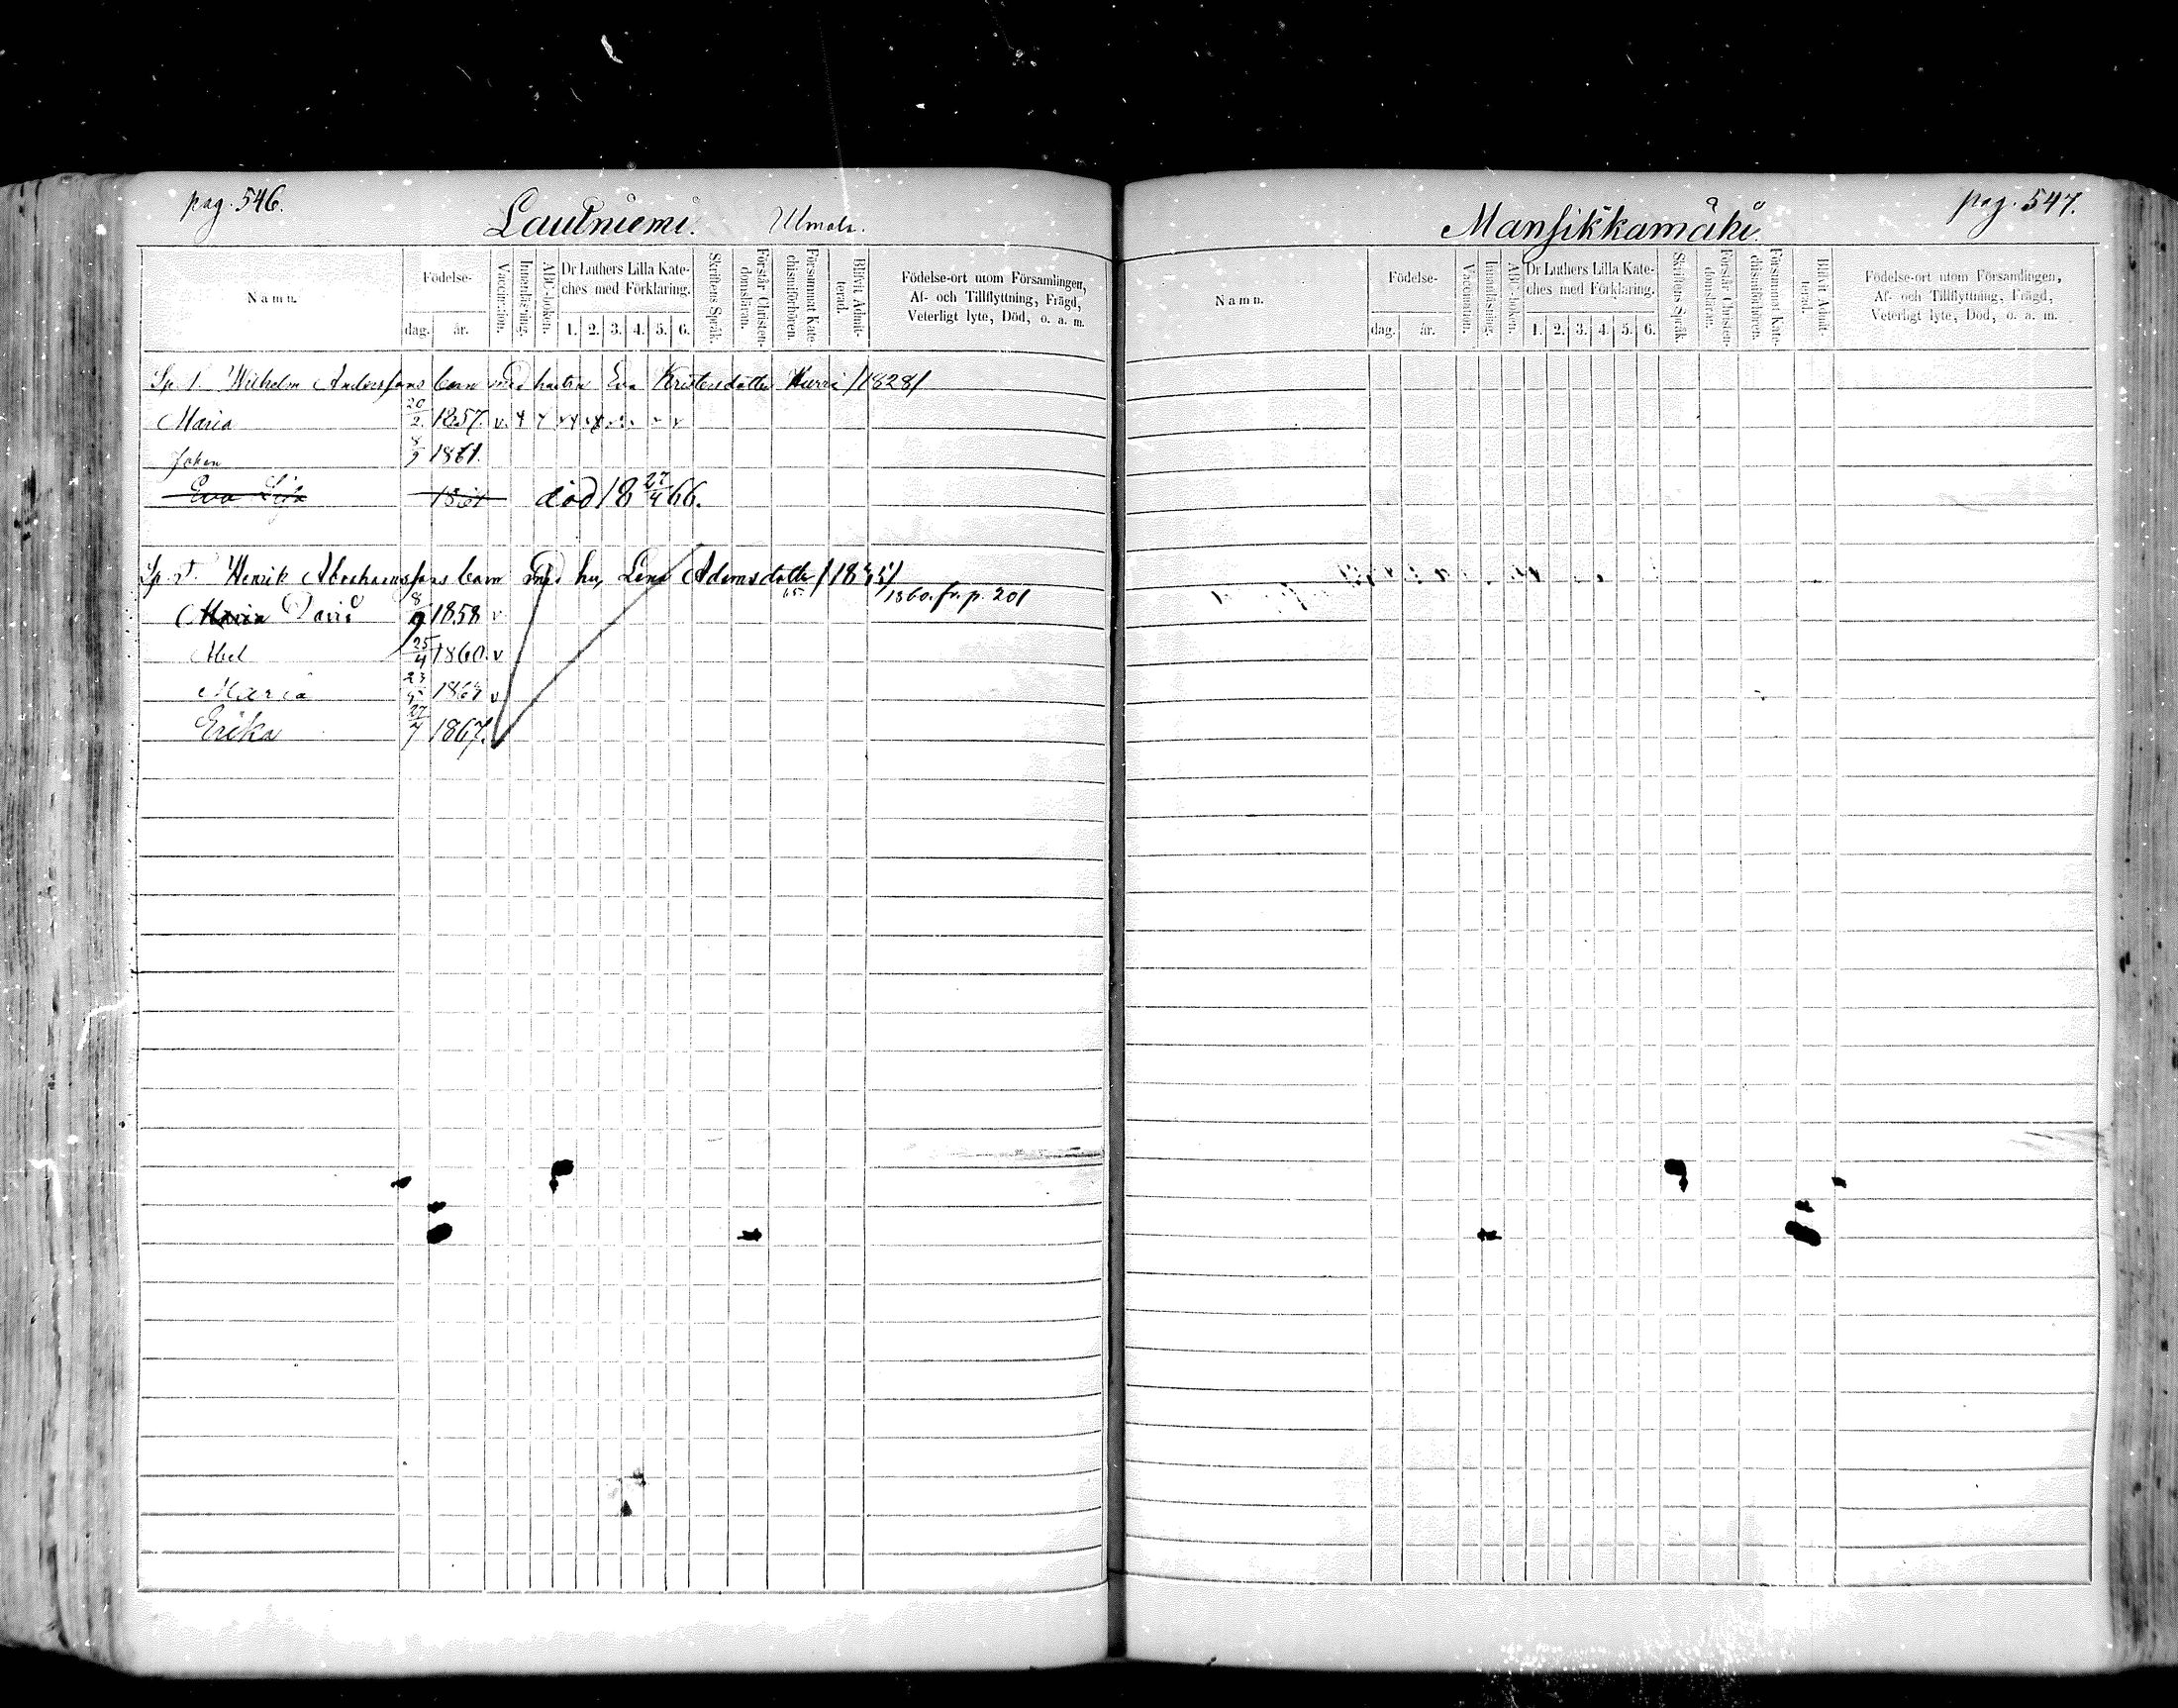 pag. 546.
Lautniemi. Umola.
Namn.
Födelse-
dag. år.
Vaccination.
Innanläsning.
ABC-boken.
Dr Luthers Lilla Kate-
ches med Förklaring.
1. 2. 3. 4. 5. 6.
Skriftens Språk.
Förstår Christen-
domsläran.
Försummat Kate-
chismiförhören.
Blifvit Admit-
terad.
Födelse-ort utom Församlingen,
Af- och Tillflyttning, Frägd,
Veterligt lyte, Död, o. a. m.
Sp. 1. Wilhelm Anderssons barn med hustru Eva Kristersdotter /1828/
Maria 20/2 1857. v
Johan 8/9 1861.
Eva Lisa död 18 27/4 66.
Henrik Abrahamssons barn med hu Lena Adamsdotter
1860. fr. p. 201
Maria David 8/9 1858 v
Abel 25/4 1860. v
Maria v
Erika 1867.
pag. 547.
Mansikkamäki.
Namn.
Födelse-
dag. år.
Vaccination.
Innanläsning.
ABC-boken.
Dr Luthers Lilla Kate-
ches med Förklaring.
1. 2. 3. 4. 5. 6.
Skriftens Språk.
Förstår Christen-
domsläran.
Försummat Kate-
chismiförhören.
Blifvit Admit-
terad.
Födelse-ort utom Församlingen,
Af- och Tillflyttning, Frägd,
Veterligt lyte, Död, o. a. m.